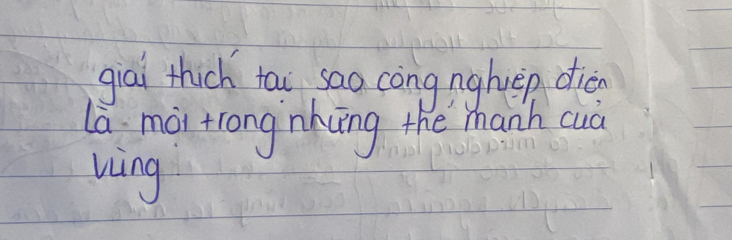 giải thích tại sao công nghiệp điện
là một trong những thế mạnh của
vùng